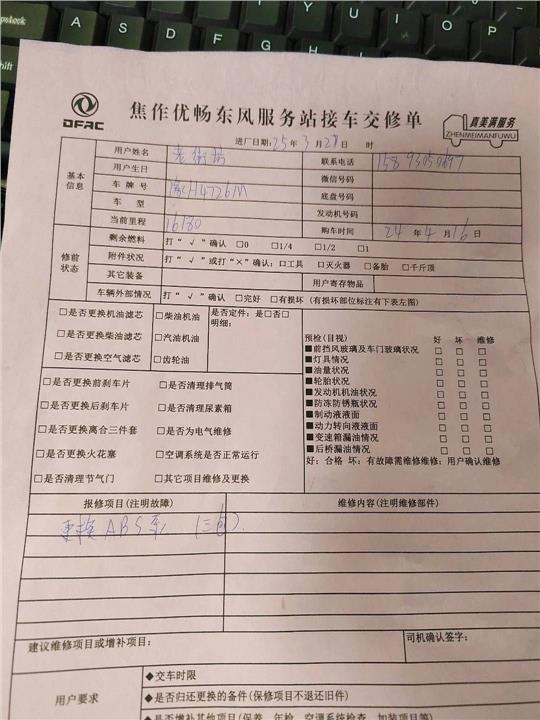 DFAC
焦作优畅东风服务站接车交修单
真美满服务
ZHENMEIMANFUWU
进厂日期:25年3月28日 时
基本信息
用户姓名
联系电话
用户生日
微信号码
车 牌 号 H4726M
底盘号码
车 型
发动机号码
当前里程 16180
购车时间 24年4月16日
修前状态
剩余燃料 打“√”确认 □0 □1/4 □1/2 □1
附件状况 打“√”或打“×”确认:□工具 □灭火器 □备胎 □千斤顶
其它装备
用户寄存物品
车辆外部情况 打“√”确认 □完好 □有损坏(有损坏部位标注有下表左图)
□是否更换机油滤芯 □柴油机油 是否定件:是□否□
明细:
□是否更换柴油滤芯 □汽油机油
□是否更换空气滤芯 □齿轮油
□是否更换前刹车片 □是否清理排气筒
□是否更换后刹车片 □是否清理尿素箱
□是否更换离合三件套 □是否为电气维修
□是否更换火花塞 □空调系统是否正常运行
□是否清理节气门 □其它项目维修及更换
预检(目视) 好 坏 维修
■前挡风玻璃及车门玻璃状况 □ □ □
■灯具情况 □ □ □
■油量状况 □ □ □
■轮胎状况 □ □ □
■发动机机油状况 □ □ □
■防冻防锈瓶状况 □ □ □
■制动液液面 □ □ □
■动力转向液液面 □ □ □
■变速箱漏油情况 □ □ □
■后桥漏油情况 □ □ □
好:合格 坏:有故障需维修维修:用户确认维修
报修项目(注明故障) 维修内容(注明维修部件)
更换ABS泵 (三包).
建议维修项目或增补项目: 司机确认签字:
用户要求
◆交车时限
◆是否归还更换的备件(保修项目不退还旧件)
◆是否增补其他项目(保养、年检、空调系统检查、加装项目等)